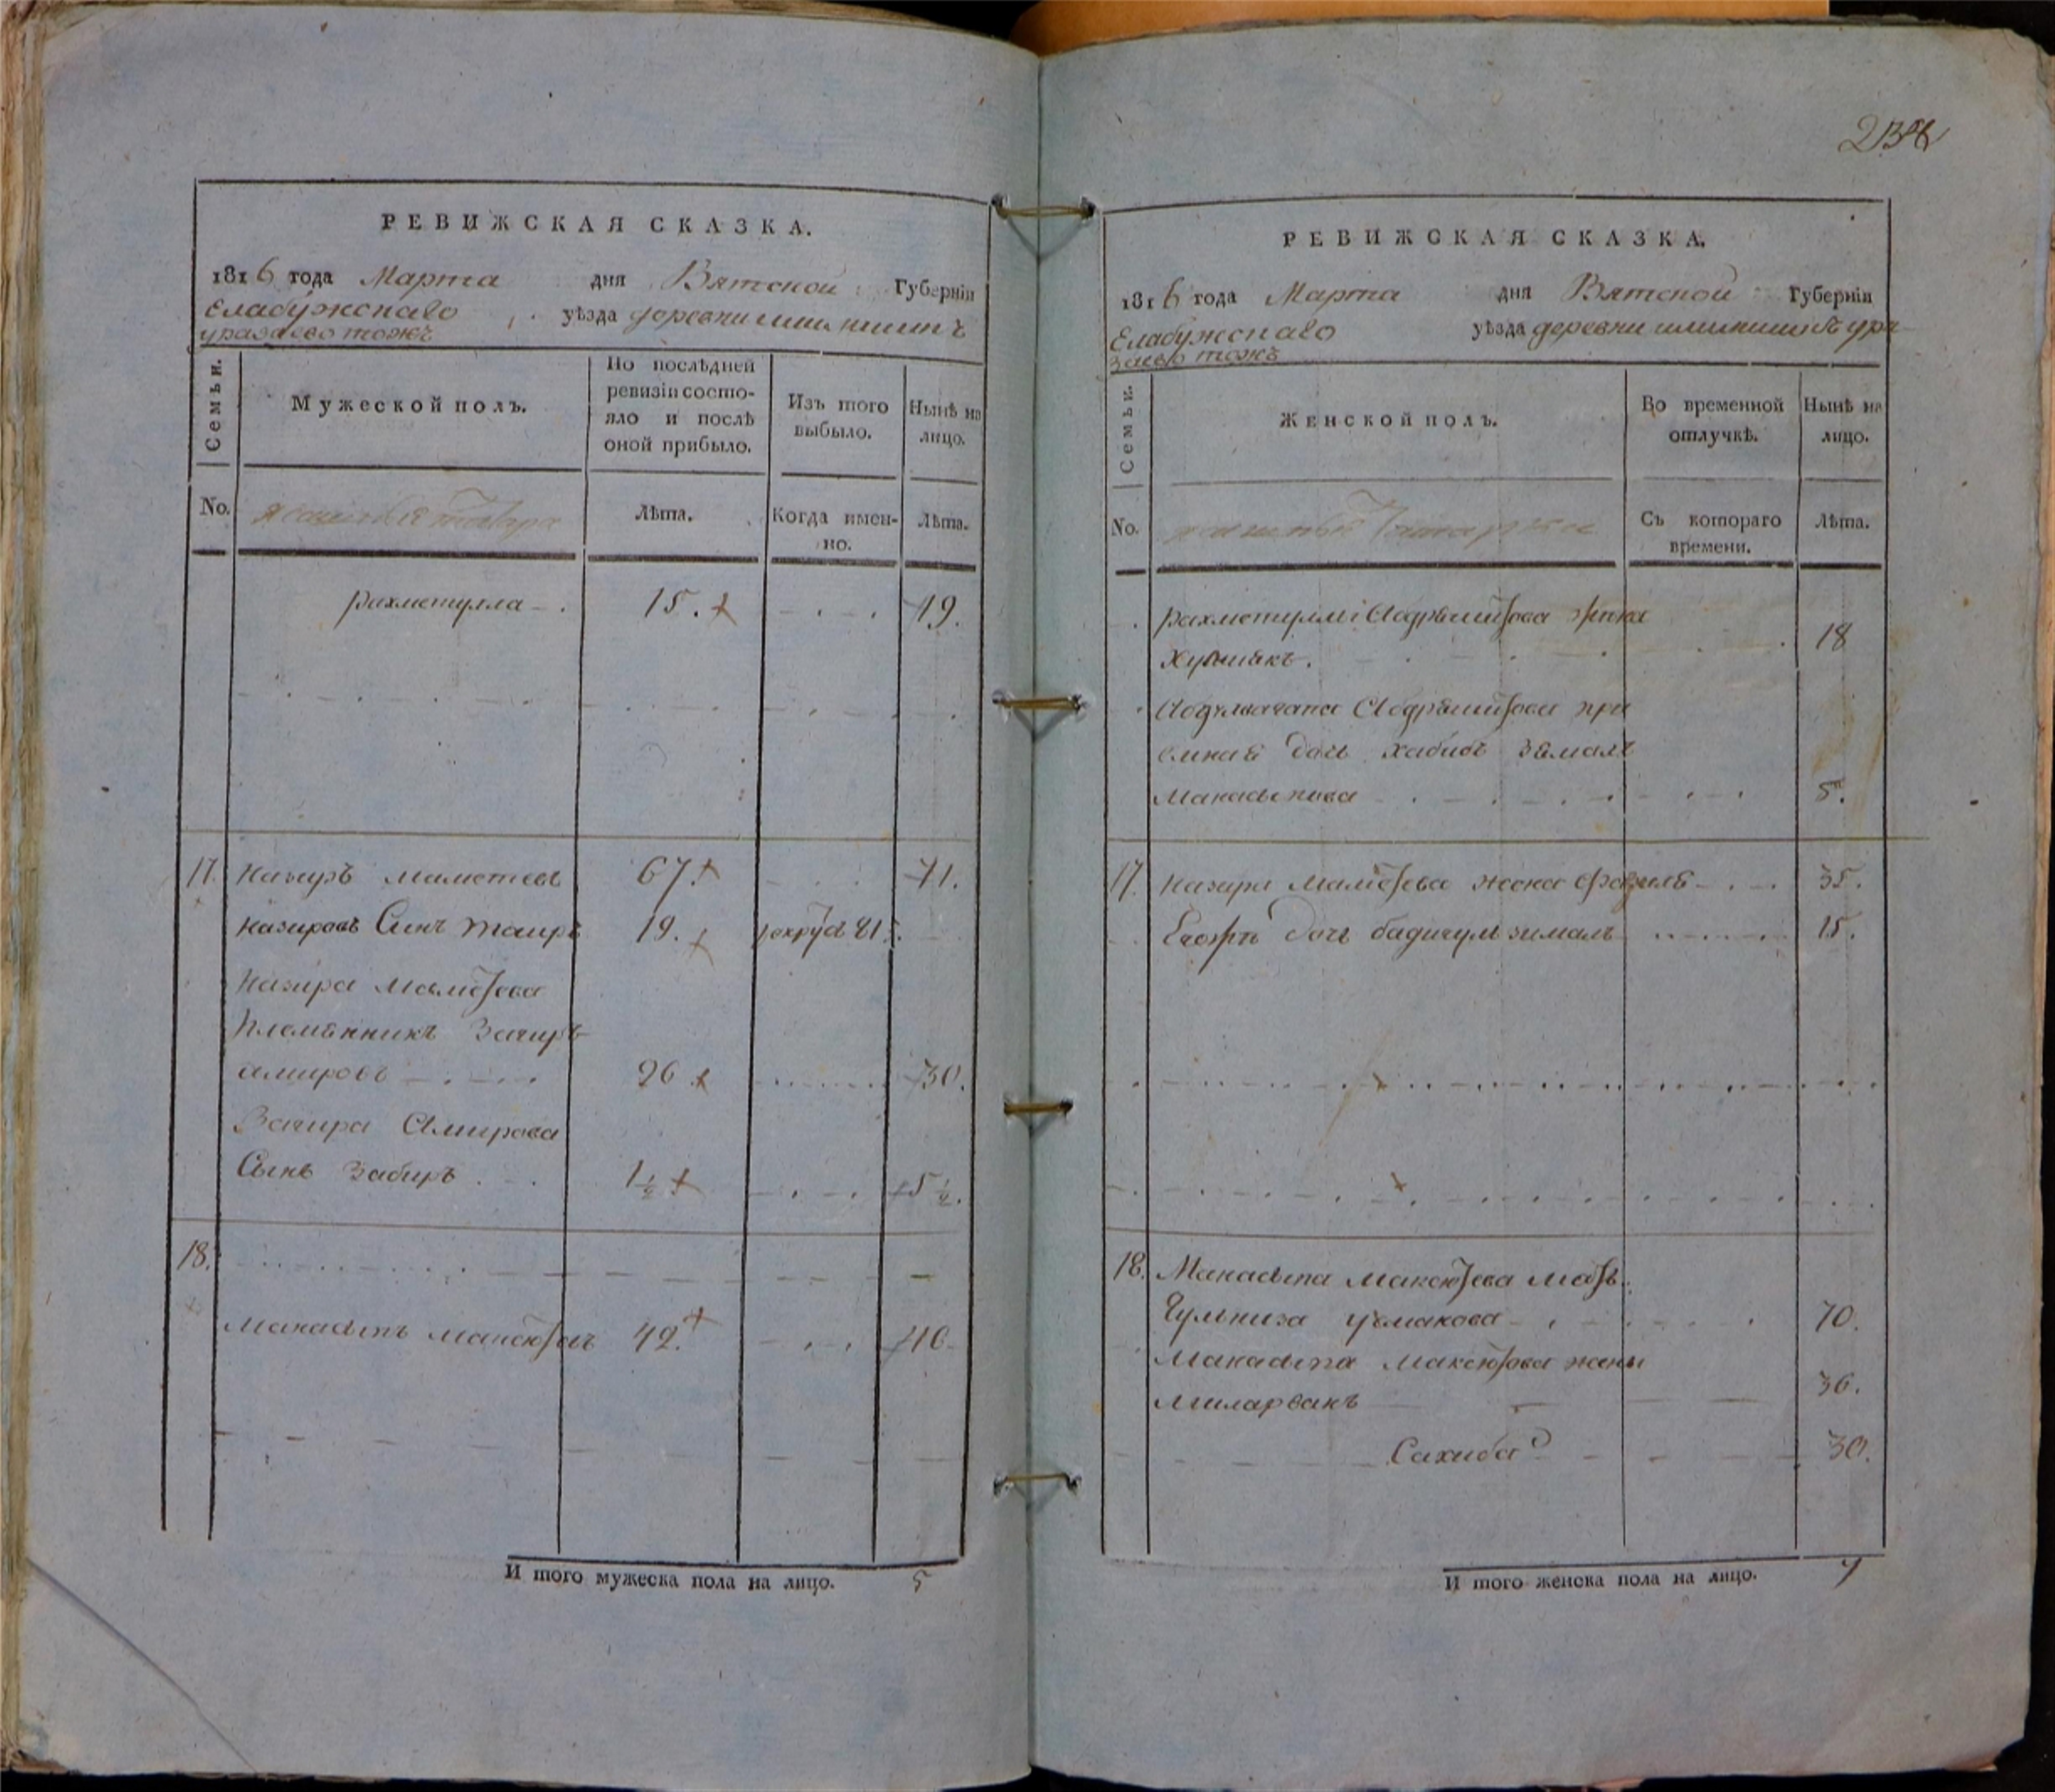 РЕВИЖСКАЯ СКАЗКА.
1816 года Марта дня Вятской Губерніи
Елабужскаго уѣзда деревни
уразаево тожъ
Семьи.
Мужеской полъ.
По послѣдней ревизіи состо-
яло и послѣ
оной прибыло.
Изъ того
выбыло.
Нынѣ на
лицо.
No.
Лѣта.
Когда имен-
но.
Лѣта.
рахметулла 15. 19.
17. Назиръ маметевъ 67. 71.
назировъ Сынъ таиръ 19.
назира маметева
племянникъ Загиръ
амировъ 26 30.
Загира Амирова
Сынъ Забиръ 1½ 5½.
18.
Манасыпъ Максютовъ 42. 46
И того мужеска пола на лицо. 5
РЕВИЖСКАЯ СКАЗКА.
1816 года Марта дня Вятской Губерніи
Елабужскаго уѣзда деревни ура
заево тожъ
Семьи.
Женской полъ.
Во временной
отлучкѣ.
Нынѣ на
лицо.
No.
Съ котораго
времени.
Лѣта.
рахметулли жена
18
прі
емная дочь хабибъ замалъ
Манасыпова 5.
17. назира маметева жена 35.
дочь бадигулъ зималъ 15.
18. Манасыпа максютева мать
Гульниза усманова 70.
Манасыпа Максютова жены
миларванъ 36.
Сахиба 30.
И того женска пола на лицо. 7